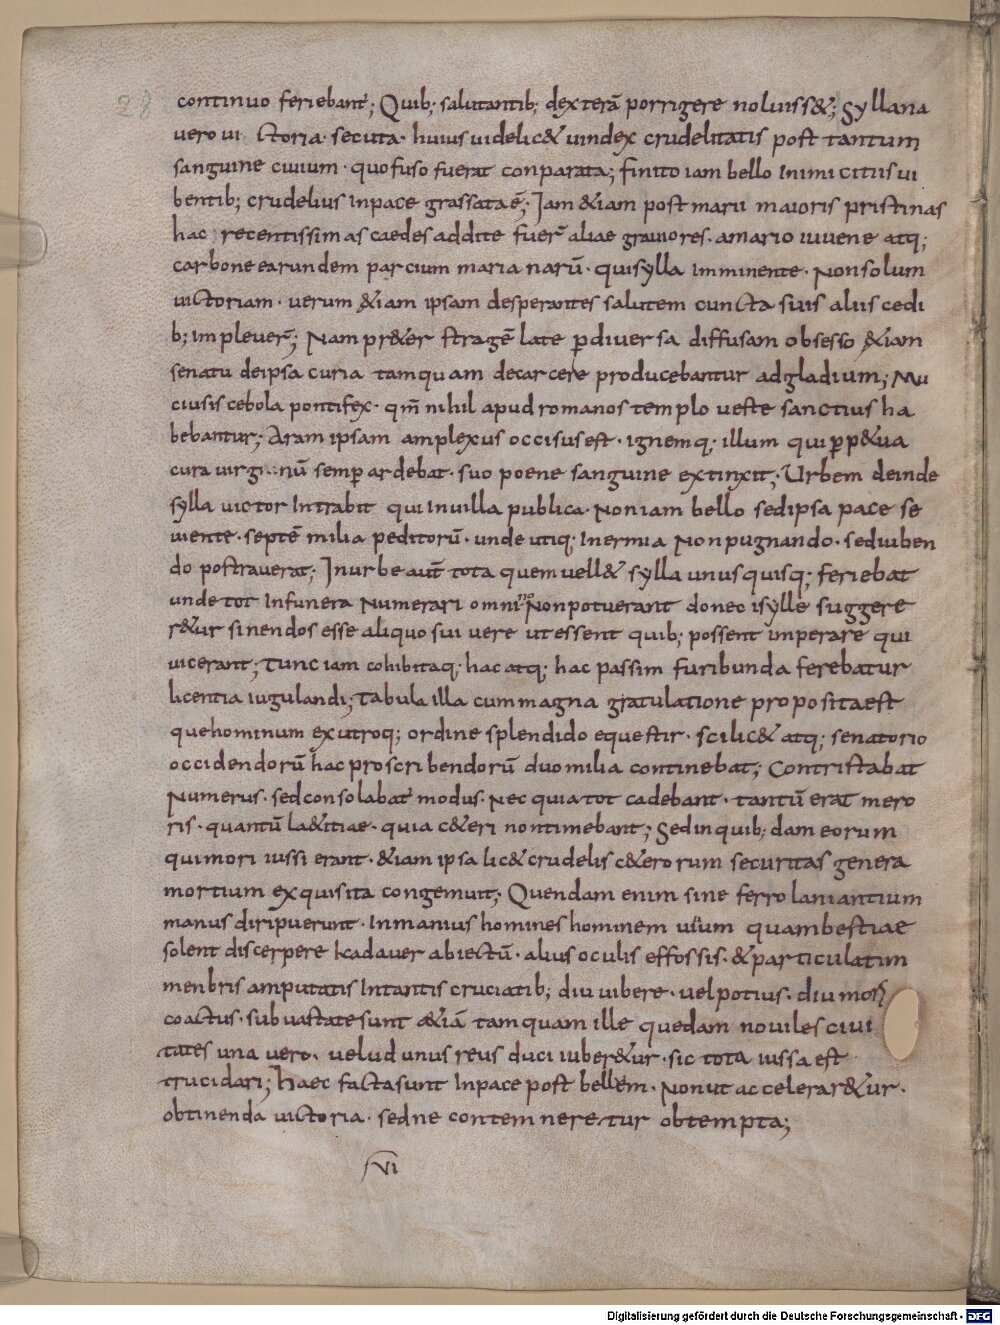 28
continuo feriebant; Quib; salutantib; dexterā porrigere noluiss&; Syllana
vero ui ctoria · secuta · huius uidelic& uindex crudelitatis post tantum
sanguine ciuium · quo fuso fuerat conparata; finito iam bello Inimicitiis ui
bentib; crudelius Inpace grassata ē; Iam &iam post marii maioris pristinas
hac recentissimas caedes addite fuer̄ aliae grauiores · amario iuuene atq;
carbone earundem parcium marianarū · quisylla Imminente · Non solum
uictoriam · uerum &iam ipsam desperantes salutem cuncta suis aliis cedi
b; impleuer̄; Nam pr&er stragē late ꝑdiuersa diffusam obsesso &iam
senatu deipsa curia tamquam decarcere producebantur adgladium; Mu
ciusis cebola pontifex · qm̄ nihil apud romanos templo ueste sanctius ha
bebantur; Aram ipsam amplexus occisus est · ignemq; illum qui ꝑp&ua
cura uirgi nū semꝑ ardebat · suo poene sanguine extinxit; Urbem deinde
sylla uictor Intrabit qui Inuilla publica · Non iam bello sedipsa pace se
uiente · septē milia peditorū · unde utiq; Inermia Non pugnando · sed iuben
do postrauerat; Inurbe aut̄ tota quem uell& sylla unusquisq; feriebat
unde tot Infunera Numerari omnino Non potuerant donec isylle suggere
r&ur sinendos esse aliquos uivere ut essent quib; possent imperare qui
uicerant; Tunc iam cohibitaq; hac atq; hac passim furibunda ferebatur
licentia iugulandi; tabula illa cum magna gratulatione proposita est
que hominum exutroq; ordine splendido equestir · scilic& atq; senatorio
occidendorū hac proscribendorū duo milia continebat; Contristabat
Numerus · sed consolabat̄ modus · Nec quia tot cadebant · tantū erat mero
ris · quantū la&itiae · quia c&eri non timebant; Sed in quib; dam eorum
qui mori iussi erant · &iam ipsa lic& crudelis c&erorum securitas genera
mortium exquisita congemuit; Quendam enim sine ferro laniantium
manus diripuerunt · Inmanius homines hominem uiuum quam bestiae
solent discerpere kadauer abiectū · alius oculis effossis · &particulatim
menbris amputatis Intantis cruciatib; diu uibere · uel potius · diu mori
coactus · subuastate sunt &iā tamquam ille quedam nouiles ciui
tates una uero · uelud unus reus duci iuber&ur · sic tota iussa est
trucidari; Haec facta sunt Inpace post bellem · Non ut accelerar&ur ·
obtinenda uictoria · sed ne contemneretur obtempta;
VI
Digitalisierung gefördert durch die Deutsche Forschungsgemeinschaft - DFG